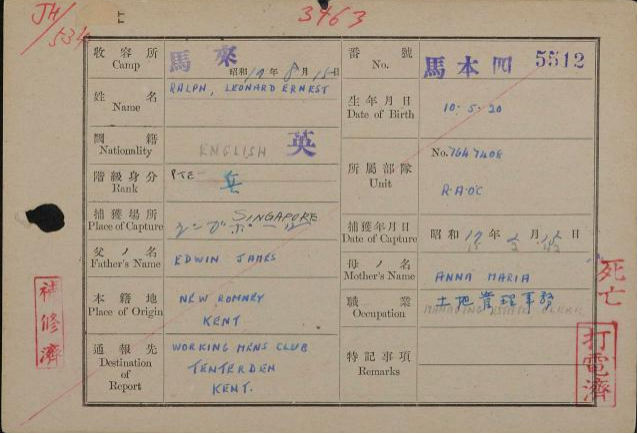 JH/
534
3463
收容所
Camp
馬來
昭和17年8月15日
番號
No.
馬本四 5512
姓名
Name
RALPH, LEONARD ERNEST
生年月日
Date of Birth
10. 5. 20
國籍
Nationality
ENGLISH 英
所屬部隊
Unit
No. 7647408
R.A.O.C
階級身分
Rank
PTE 兵
捕獲場所
Place of Capture
SINGAPORE
シンガポール
捕獲年月日
Date of Capture
昭和 17 年 2 15
父ノ名
Father's Name
EDWIN JAMES
母ノ名
Mother's Name
ANNA MARIA
本籍地
Place of Origin
NEW ROMNEY
KENT
職業
Occupation
土地管理事務
MANAGING ESTATE CLERK
通報先
Destination
of
Report
WORKING MENS CLUB
TENTERDEN
KENT.
特記事項
Remarks
補修濟
死亡
打電濟